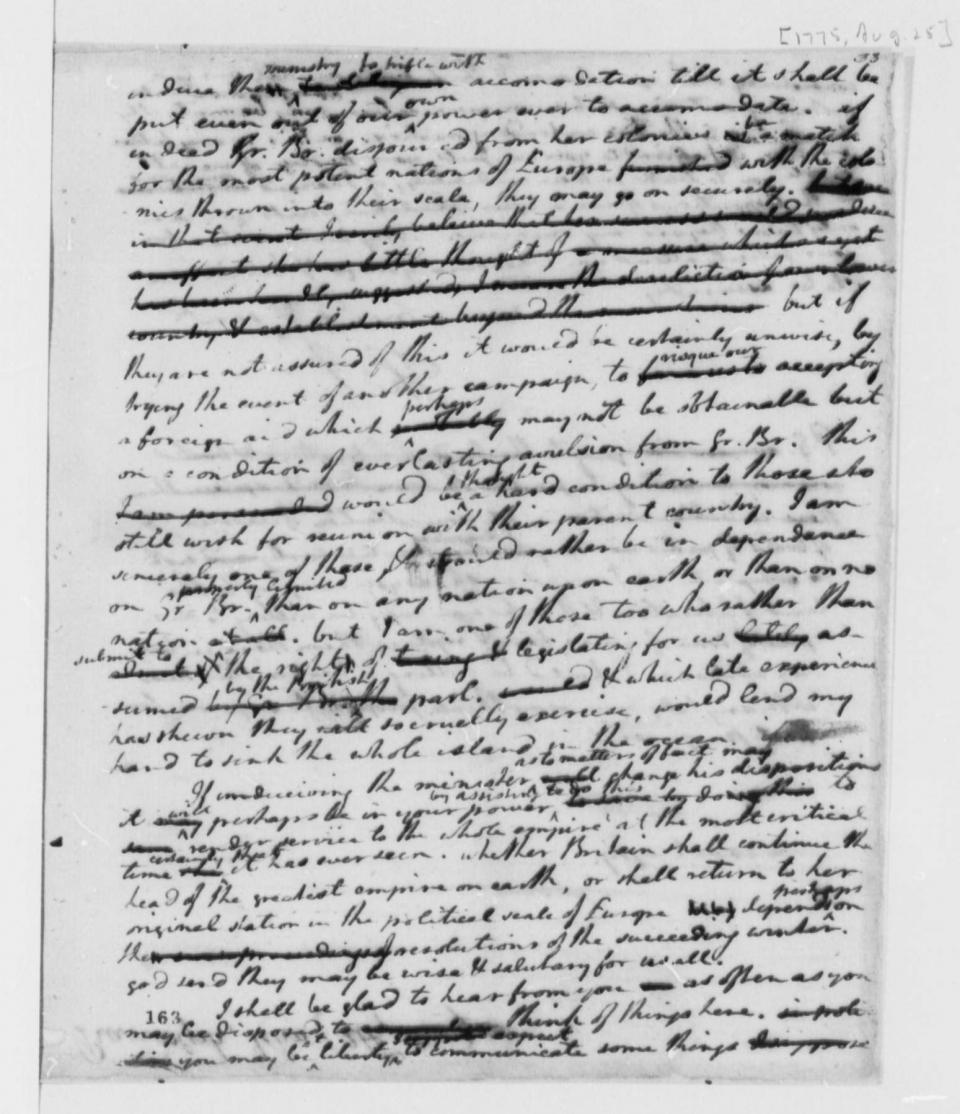 [1775, Aug. 25]
33
ministry to trifle with
induce the accomodation till it shall be
own
put even out of our power ever to accomodate. if
be
indeed Gr. Br. disjoined from her colonies a match
for the most potent nations of Europe furnished with the colo
nies thrown into their scale, they may go on securely.
in that event I verily believe that
an effort she has little thought of a measure which as yet
has been hardly suggested, I mean the dereliction of our lower
country & establishment beyond the mountains but if
they are not assured of this it would be certainly unwise, by
risque our
trying the event of another campaign, to force us to accepting
perhaps
a foreign aid which probably may not be obtainable but
on condition of everlasting avulsion from Gr. Br. This
thought
I am persuaded would be a hard condition to those who
still wish for reunion with their parent country. I am
sincerely one of those & should rather be in dependance
properly limited
on Gr. Br. than on any nation upon earth, or than on no
nation at all. but I am one of those too who rather than
submit to
the right of legislating for us lately as-
by the British
sumed by Gr. Br. parl. & which late experience
has shewn they will so cruelly exercise, would lend my
hand to sink the whole island in the ocean.
as to matters of fact may
If undeceiving the minister will change his disposition
will by assisting to do this
it may perhaps be in your power to
render service to the whole empire at the most critical
certainly that
time it has ever seen. whether Britain shall continue the
head of the greatest empire on earth, or shall return to her
perhaps
original station in the political scale of Europe depends on
the proceedings of resolutions of the succeeding winter.
god send they may be wise & salutary for us all.
I shall be glad to hear from you as often as you
163
may be disposed to think of things here.
expect
you may be at liberty to communicate some things